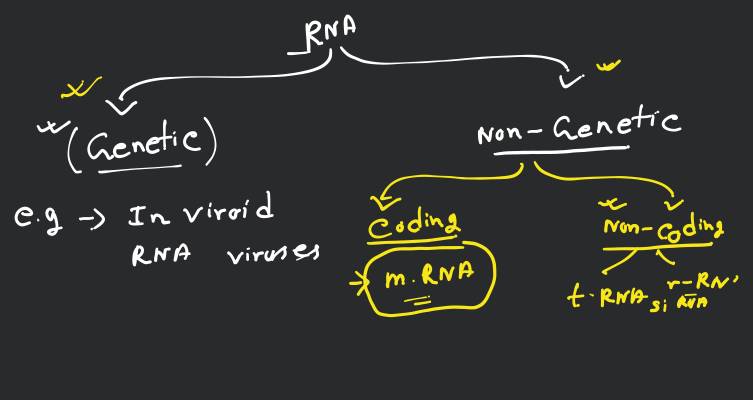 RNA
(Genetic)
Non-Genetic
e.g → In viroid
RNA viruses
Coding
m.RNA
Non-coding
t.RNA
r-RN
si RNA